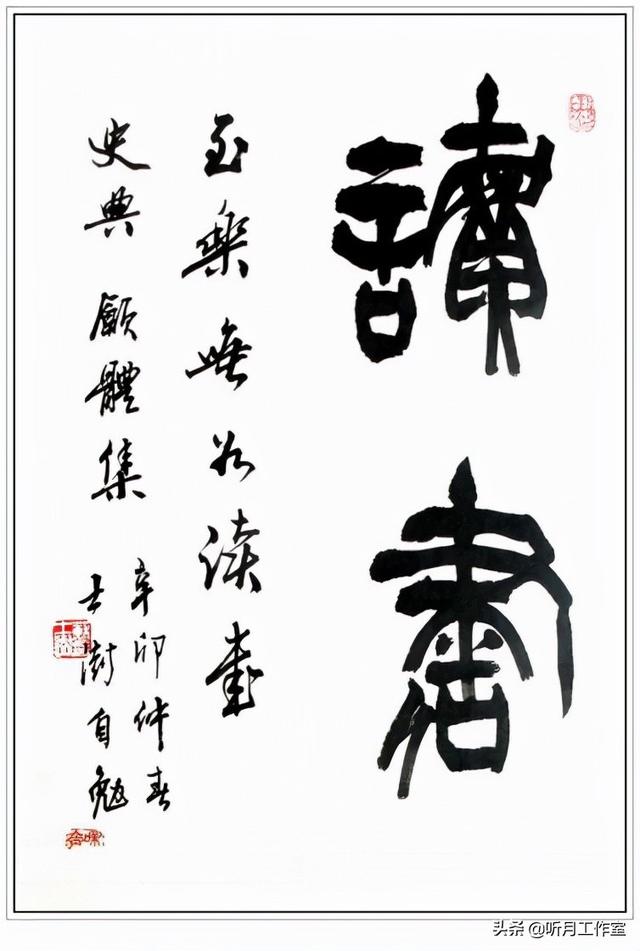 讀書
至樂無如读書
史典顧體集
辛卯仲春
士澍自勉
头条 @听月工作室